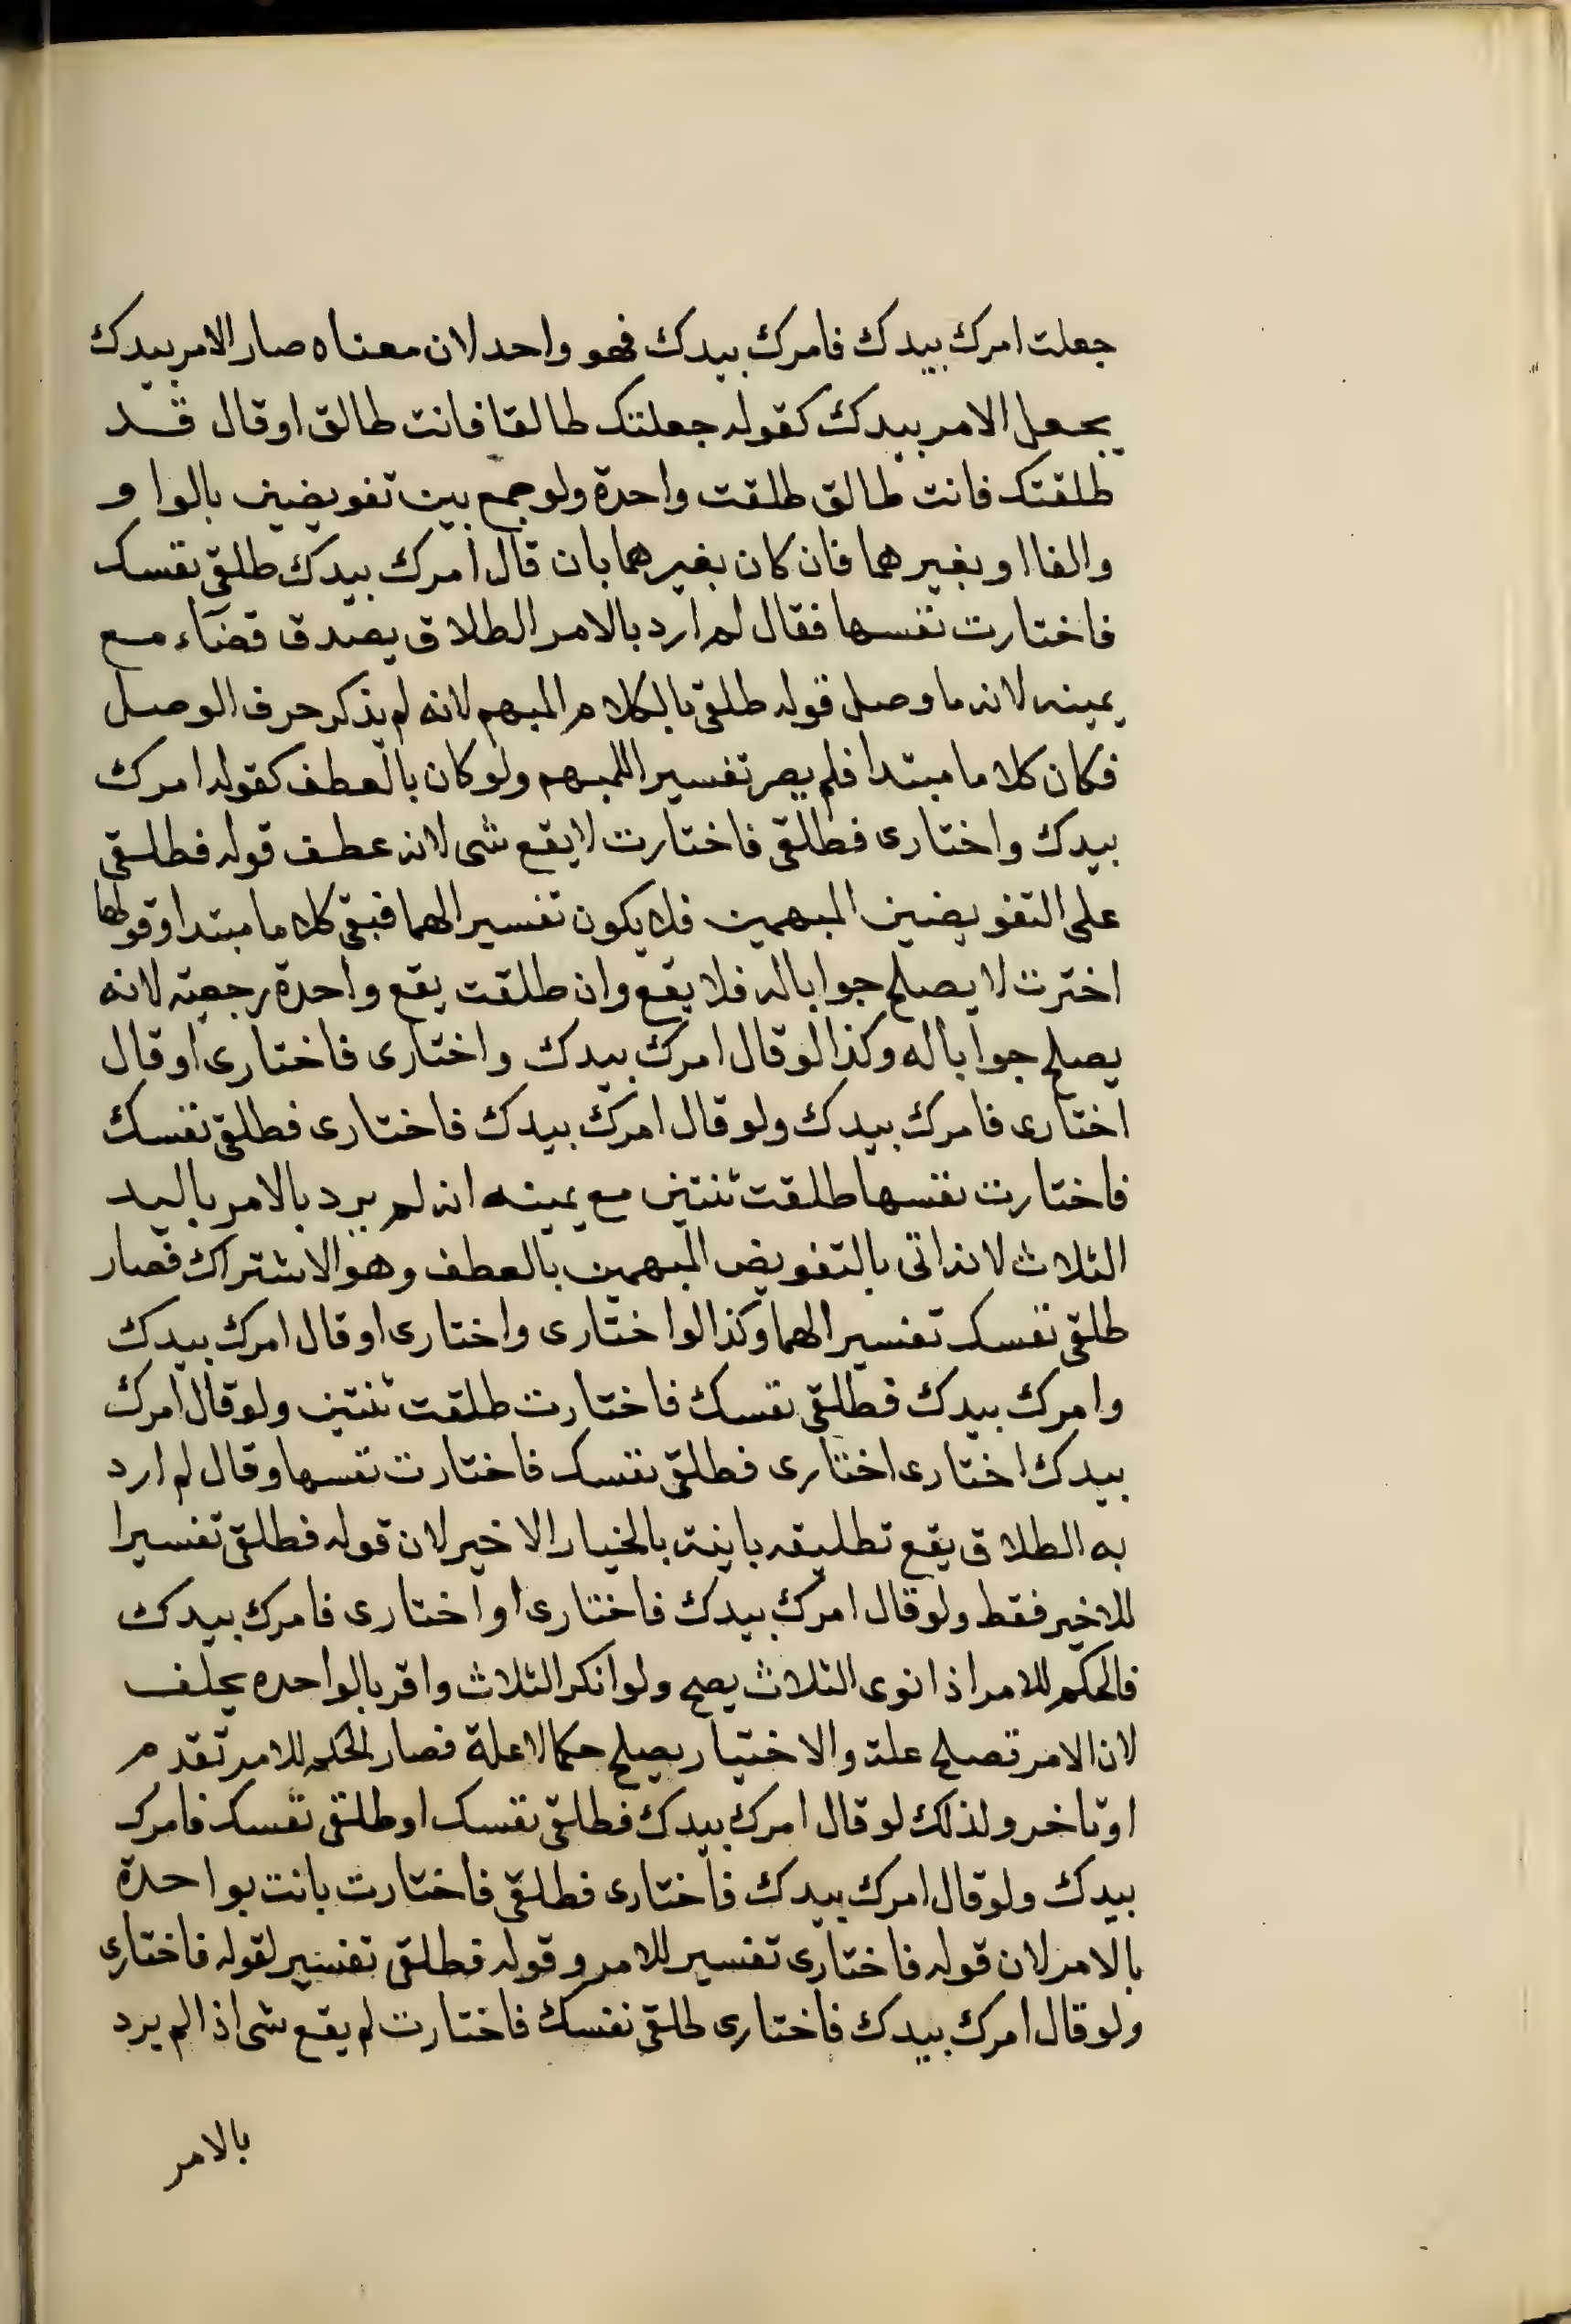 جعلت امرك بيدك فامرك بيدك فهو واحد لان معناه صار الامر بيدك
بجعل الامر بيدك كقوله جعلتك طالقا فانت طالق او قال قد
طلقتك فانت طالق طلقت واحدة ولو جمع بين تفويضين بالواو
والفا او بغيرهما فان كان بغيرهما بان قال امرك بيدك طلقى نفسك
فاختارت نفسها فقال لم ارد بالامر الطلاق يصدق قضآء مع
يمينه لانه ما وصل قوله طلقى بالكلام المبهم لانه لم يذكر حرف الوصل
فكان كلاما مبتدا فلم يصر تفسيرا للمبهم ولو كان بالعطف كقوله امرك
بيدك واختارى فطلقى فاختارت لا يقع شى لانه عطف قوله فطلقى
على التفويضين المبهمين فلا يكون تفسيرا لهما فبقى كلاما مبتدا وقولها
اخترت لا يصلح جوابا له فلا يقع وان طلقت يقع واحدة رجعية لانه
يصلح جوابا له وكذا لو قال امرك بيدك واختارى فاختارى او قال
اختارى فامرك بيدك ولو قال امرك بيدك فاختارى فطلقى نفسك
فاختارت نفسها طلقت ثنتين مع يمينه انه لم يرد بالامر باليد
الثلاث لانه اتى بالتفويض المبهمين بالعطف وهو الاشتراك فصار
طلقى نفسك تفسيرا لهما وكذا لو اختارى واختارى او قال امرك بيدك
وامرك بيدك فطلقى نفسك فاختارت طلقت ثنتين ولو قال امرك
بيدك اختارى اختارى فطلقى نفسك فاختارت نفسها وقال لم ارد
به الطلاق يقع تطليقه باينة بالخيار الاخير لان قوله فطلقى تفسيرا
للاخير فقط ولو قال امرك بيدك فاختارى او اختارى فامرك بيدك
فالحكم للامر اذا نوى الثلاث يصح ولو انكر الثلاث واقر بالواحده يحلف
لان الامر تصلح علة والاختيار يصلح حكما لا علة فصار الحكم للامر تقدم
او تاخر ولذلك لو قال امرك بيدك فطلقى نفسك او طلقى نفسك فامرك
بيدك ولو قال امرك بيدك فاختارى فطلقى فاختارت بانت بواحدة
بالامر لان قوله فاختارى تفسير للامر وقوله فطلقى تفسير لقوله فاختارى
ولو قال امرك بيدك فاختارى طلقى نفسك فاختارت لم يقع شى اذا لم يرد
بالامر